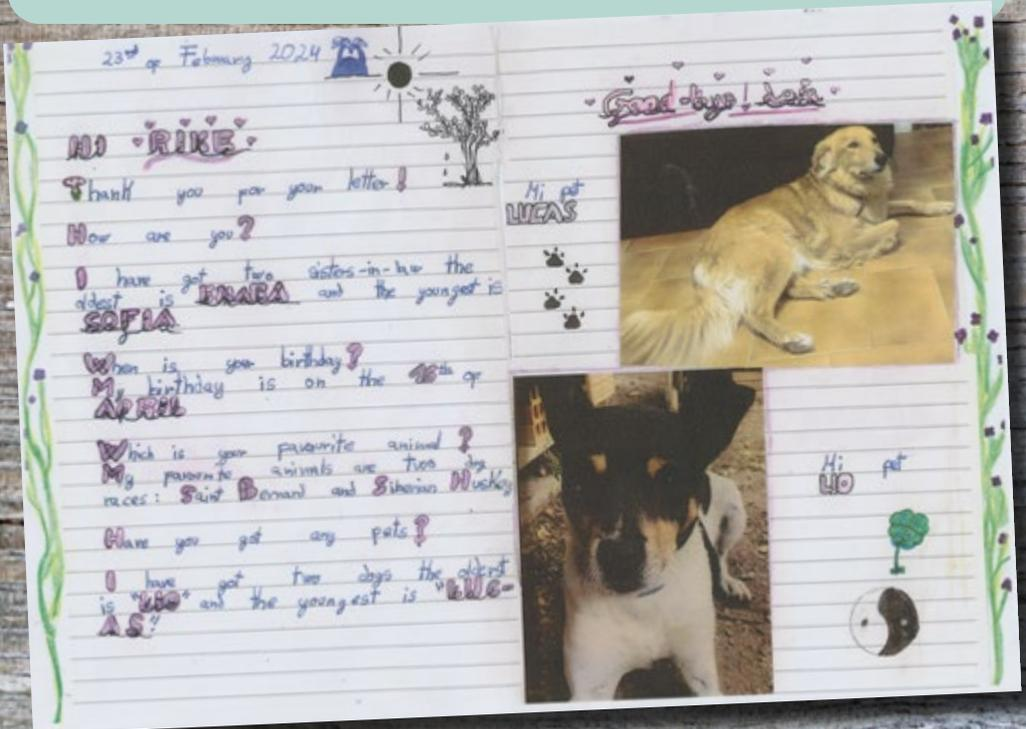 23rd of February 2024
Hi RIKE
Thank you for your letter!
How are you?
I have got two sisters-in-law the
oldest is and the youngest is
SOFIA
When is your birthday?
My birthday is on the th of
APRIL
Which is your favourite animal?
My favourite animals are two dog
races: Saint Bernard and Siberian Husky
Have you got any pets?
I have got two dogs the oldest
is "LIO" and the youngest is "LUC-
AS"
Good-bye!
Mi pet
LUCAS
Mi pet
LIO